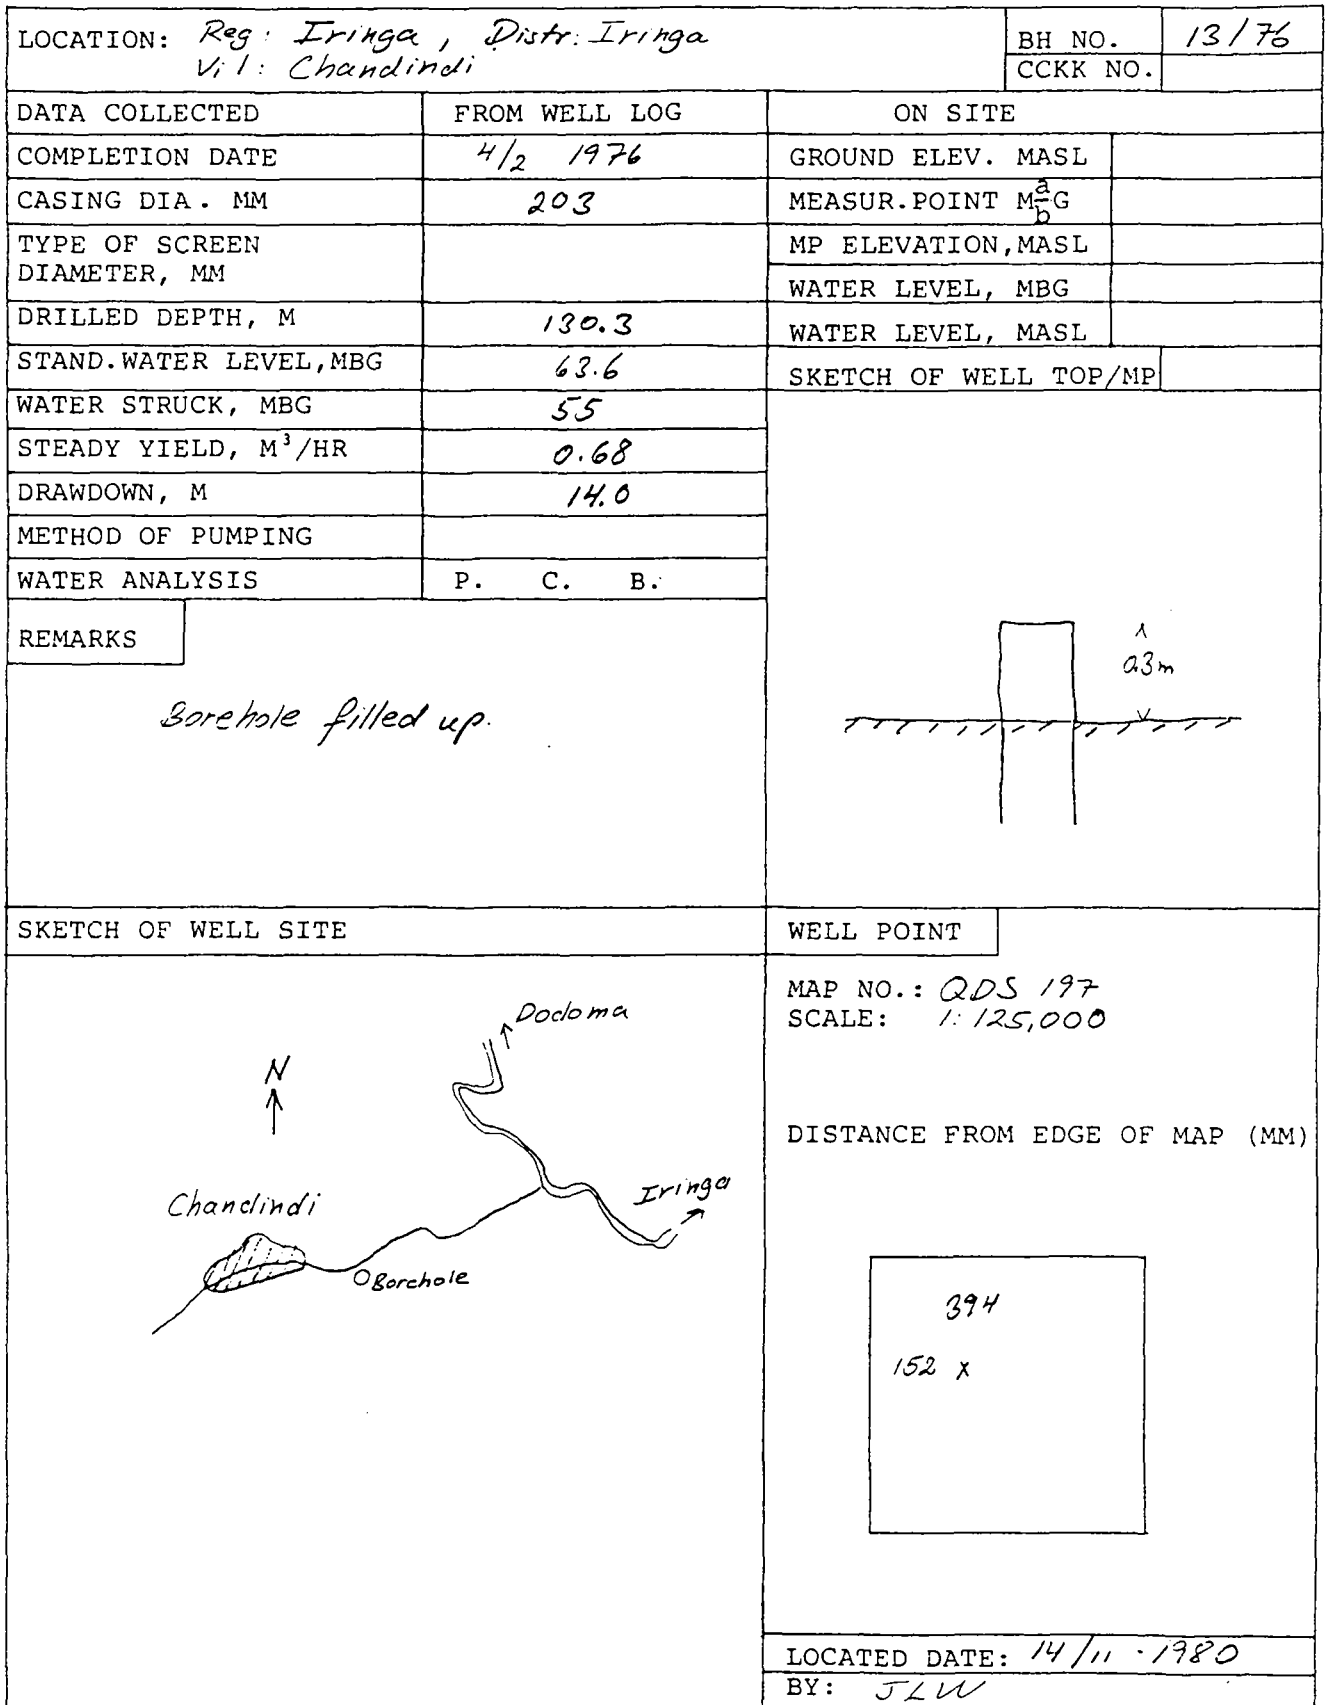 LOCATION: Reg: Iringa, Distr: Iringa
Vil: Chandindi
BH NO. 13/76
CCKK NO.
DATA COLLECTED FROM WELL LOG ON SITE
COMPLETION DATE 4/2 1976
CASING DIA. MM 203
TYPE OF SCREEN
DIAMETER, MM
DRILLED DEPTH, M 130.3
STAND.WATER LEVEL,MBG 63.6
WATER STRUCK, MBG 55
STEADY YIELD, M³/HR 0.68
DRAWDOWN, M 14.0
METHOD OF PUMPING
WATER ANALYSIS P. C. B.
GROUND ELEV. MASL
MEASUR.POINT M a/b G
MP ELEVATION,MASL
WATER LEVEL, MBG
WATER LEVEL, MASL
SKETCH OF WELL TOP/MP
0.3m
REMARKS
Borehole filled up.
SKETCH OF WELL SITE
Dodoma
N
Chandindi
Iringa
Borehole
WELL POINT
MAP NO.: QDS 197
SCALE: 1:125,000
DISTANCE FROM EDGE OF MAP (MM)
394
152 x
LOCATED DATE: 14/11 · 1980
BY: JLW